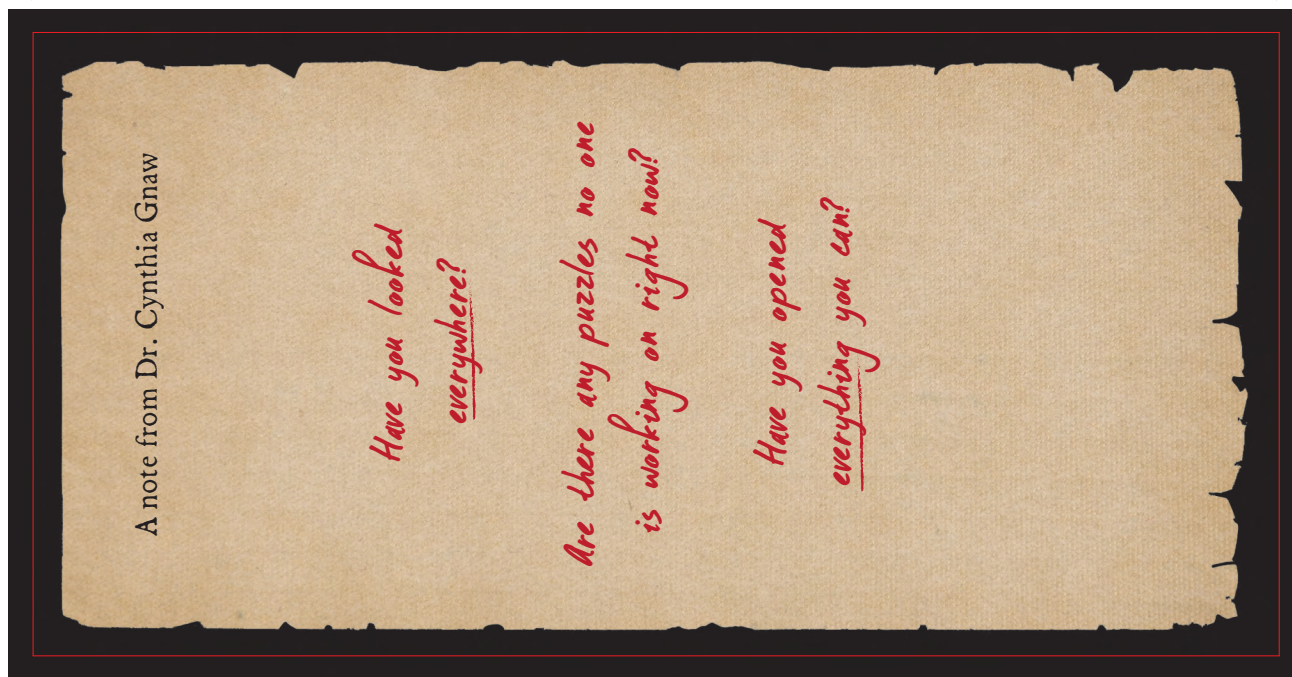 A note from Dr. Cynthia Gnaw
Have you looked
everywhere?
Are there any puzzles no one
is working on right now?
Have you opened
everything you can?